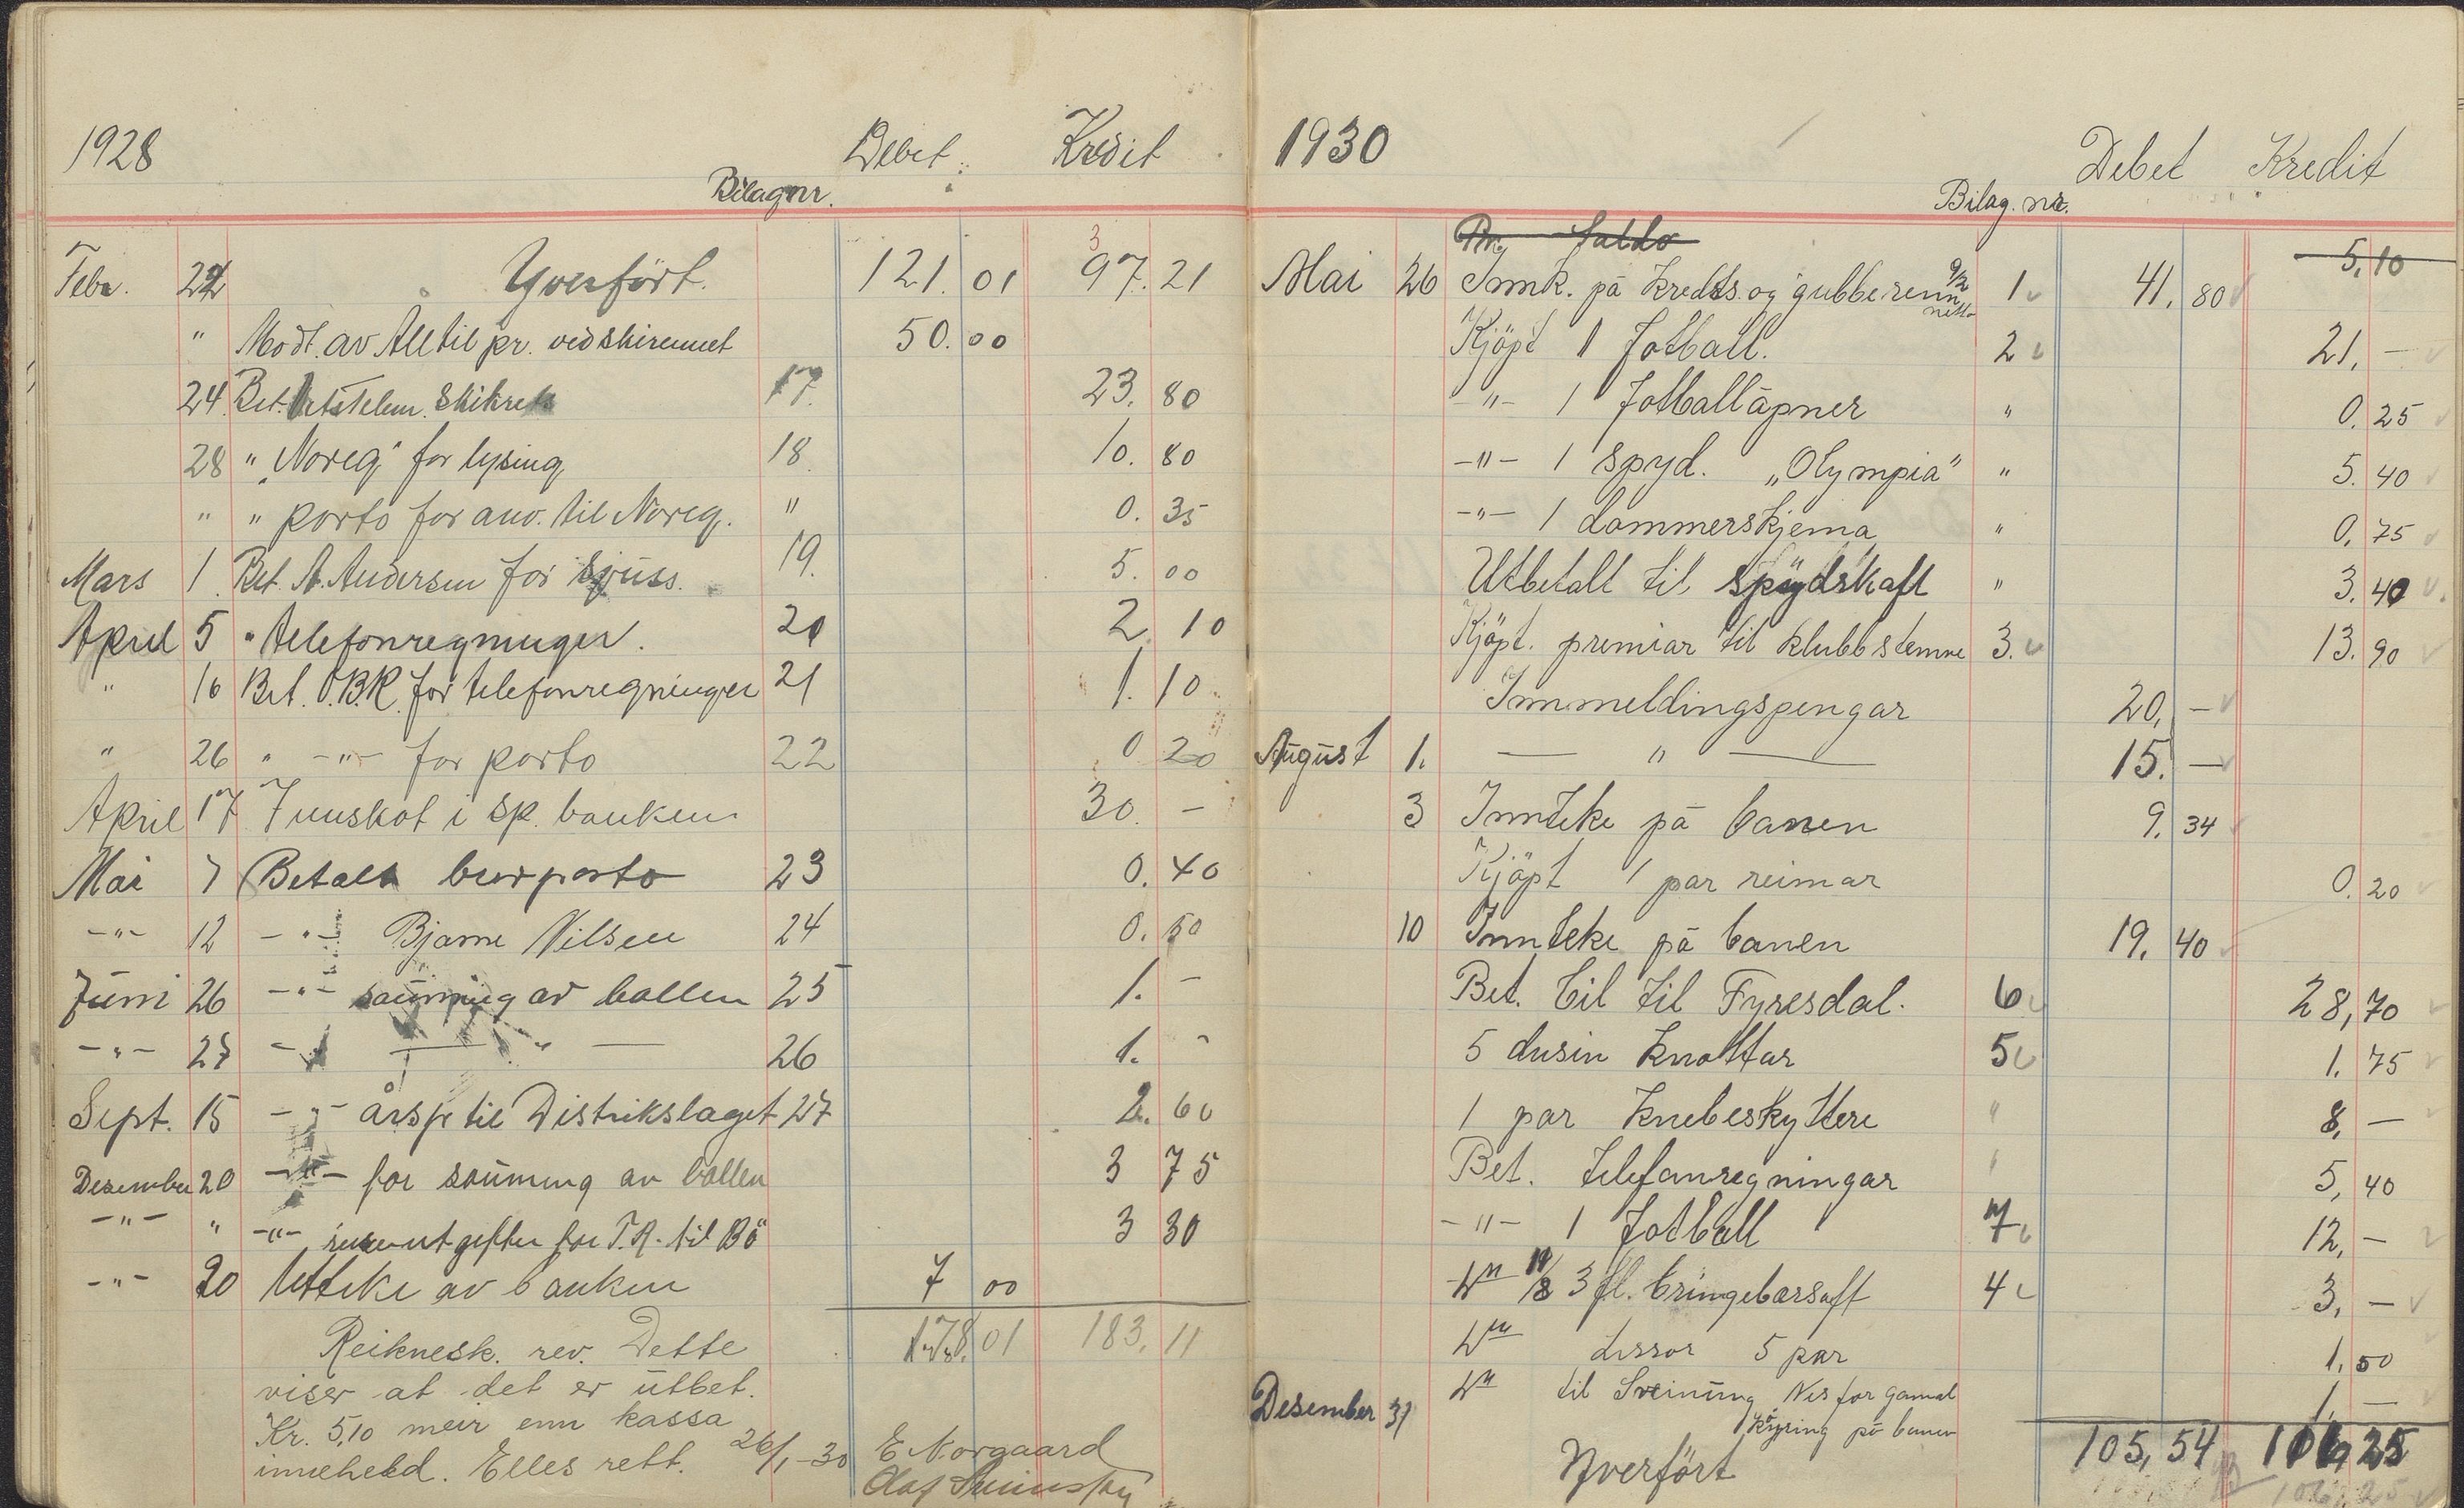 1928 Debet Kredit
Bilagnr.
Febr. 22 Yverfört. 121.01 97.21
" Modt. av Alf til pr. ved skirennet 50.00
24. Bet. Telem. Skikrets 17. 23.80
28 " "Noreg" for lysing 18. 10.80
" " porto for anv. til Noreg. " 0.35
Mars 1. Bet. A. Andersen for skjuss. 19. 5.00
April 5 " telefonregninger. 20 2.10
" 16 Bet. O.B.R. for telefonregninger 21 1.10
" 26 " -"- for porto 22 0.20
April 17 Innskot i sp. banken 30.-
Mai 7 Betalt brevporto 23 0.40
-"- 12 -"- Bjarne Nilsen 24 0.50
Juni 26 -"- sauming av ballen 25 1.-
-"- 27 -"- " 26 1.-
Sept. 15 -"- årsp. til Distrikslaget 27 2.60
Desember 20 -"- for sauming av ballen 3 75
-"- " -"- reiseutgifter for T.R. til Bö 3 30
-"- 20 Utteke av banken 7 00
178.01 183.11
Reiknesk. rev. Dette
viser at det er utbet.
Kr. 5,10 meir enn kassa
inneheld. Elles rett. 26/1-30 E Norgaard
Olaf
1930 Debet Kredit
Bilag. nr.
Pr. Saldo 5,10
Mai 26 Innk. på kreds. og gubberenn 9/2 netto 1 41.80
Kjöpt 1 Fotball. 2 21,-
-"- 1 Fotballåpner " 0.25
-"- 1 spyd. "Olympia" " 5.40
-"- 1 dommerskjema " 0,75
Utbetalt til spydskaft " 3.40
Kjöpt. premiar til klubbstemne 3. 13.90
Innmeldingspengar 20,-
August 1. — " — 15.-
3 Innteke på banen 9.34
Kjöpt 1 par reimar 0.20
10 Innteke på banen 19.40
Bet. bil til Fyresdal. 6 28,70
5 dusin knottar 5 1.75
1 par knebeskyttere " 8,-
Bet. telefonregningar " 5,40
-"- 1 Fotball 7 12,-
-"- 3 fl. bringebærsaft 4 3,-
-"- Lissor 5 par 1,50
Desember 31 -"- til Sveinung Nes for gamal 1,-
köyring på banen
Yverfört 105,54 106,25